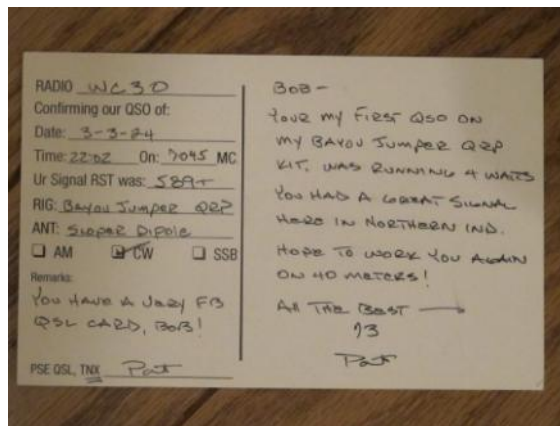 RADIO WC3O
Confirming our QSO of:
Date: 3-3-24
Time: 22:02 On: 7045 MC
Ur Signal RST was: 589+
RIG: Bayou Jumper QRP
ANT: Sloper Dipole
AM CW SSB
Remarks:
You HAVE A VERY FB
QSL CARD, BOB!
PSE QSL, TNX Pat
BOB-
Your my First QSO ON
MY BAYOU JUMPER QRP
KIT. WAS RUNNING 4 WATTS
YOU HAD A GREAT SIGNAL
HERE IN NORTHERN IND.
HOPE TO WORK YOU AGAIN
ON 40 METERS!
All THE BEST
73
Pat